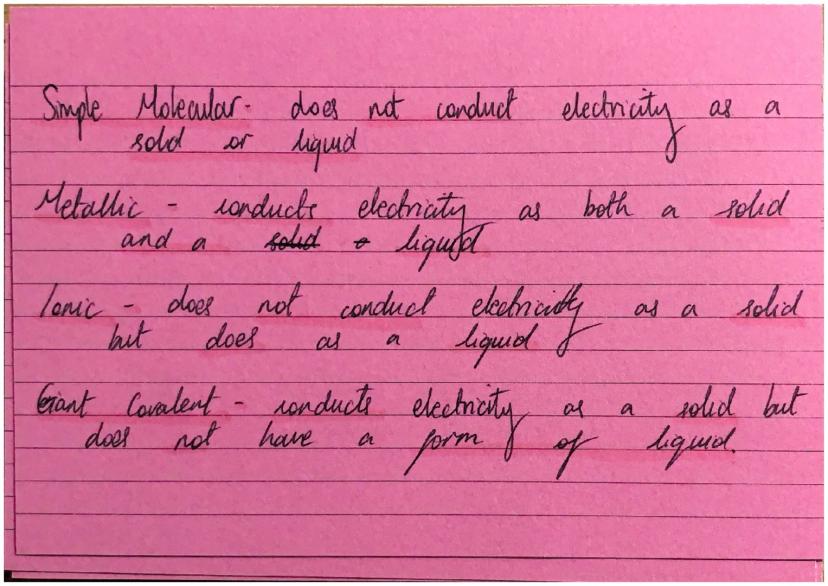 Simple Molecular - does not conduct electricity as a
solid or liquid
Metallic - conducts electricity as both a solid
and a solid o liquid
Ionic - does not conduct electricity as a solid
but does as a liquid
Giant Covalent - conducts electricity as a solid but
does not have a form of liquid.